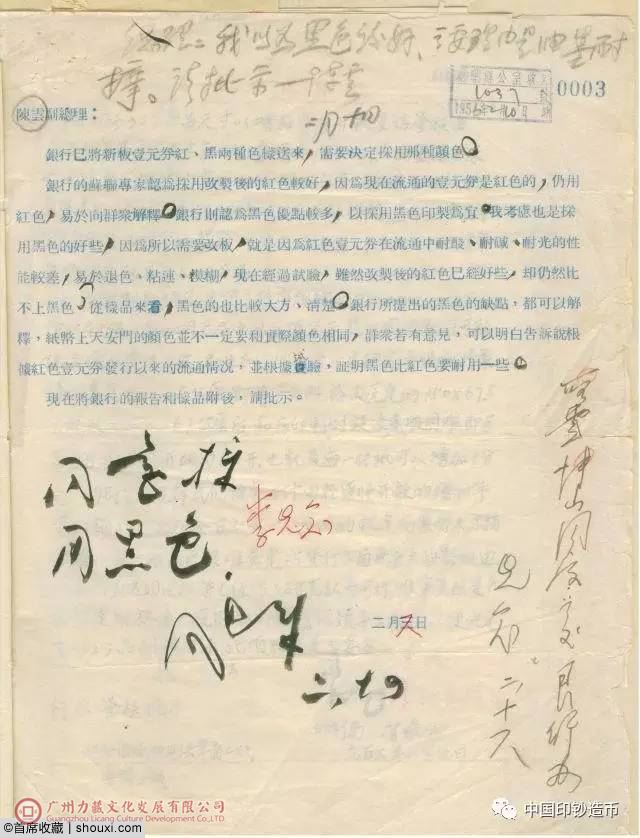 总理：我以为黑色较好，主要理由是油墨耐
擦。请批示 陈云
二月十四
1037
1956年2月10日
0003
陳雲副總理：
銀行已將新板壹元券紅、黑兩種色樣送來，需要決定採用那種顏色。
銀行的蘇聯專家認爲採用改製後的紅色較好，因爲現在流通的壹元券是紅色的，仍用
紅色，易於向群衆解釋。銀行則認爲黑色優點較多，以採用黑色印製爲宜。我考慮也是採
用黑色的好些，因爲所以需要改板，就是因爲紅色壹元券在流通中耐酸、耐碱、耐光的性
能較差，易於退色、粘連、模糊，現在經過試驗，雖然改製後的紅色已經好些，却仍然比
不上黑色，從樣品來看，黑色的也比較大方、清楚。銀行所提出的黑色的缺點，都可以解
釋，紙幣上天安門的顏色並不一定要和實際顏色相同，群衆若有意見，可以明白告訴說根
據紅色壹元券發行以來的流通情况，並根據試驗，証明黑色比紅色要耐用一些。
現在將銀行的報告和樣品附後，請批示。
同意採
用黑色。
李先念
二月 日
周恩来
二、十四
同志 交
先念 二十八
广州力藏文化发展有限公司
Guangzhou Licang Culture Development Co.,LTD
中国印钞造币
@首席收藏 | shouxi.com